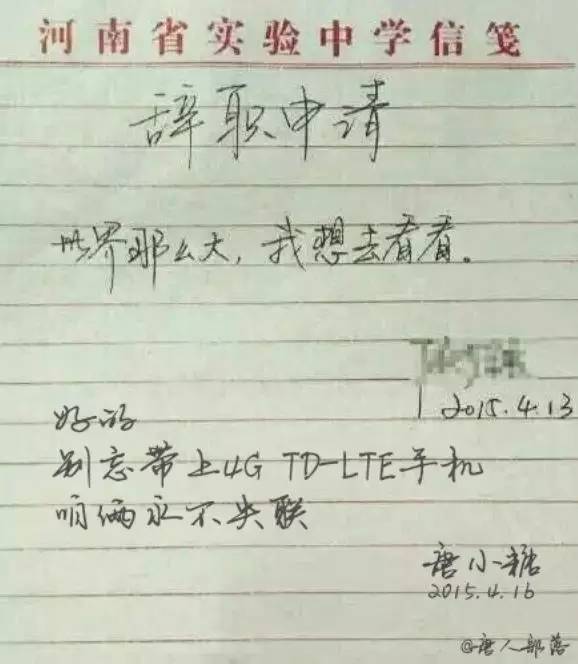 河南省实验中学信笺
辞职申请
世界那么大，我想去看看。
2015.4.13
好的
别忘带上4G TD-LTE手机
咱俩永不失联
唐小糖
2015.4.16
@唐人部落